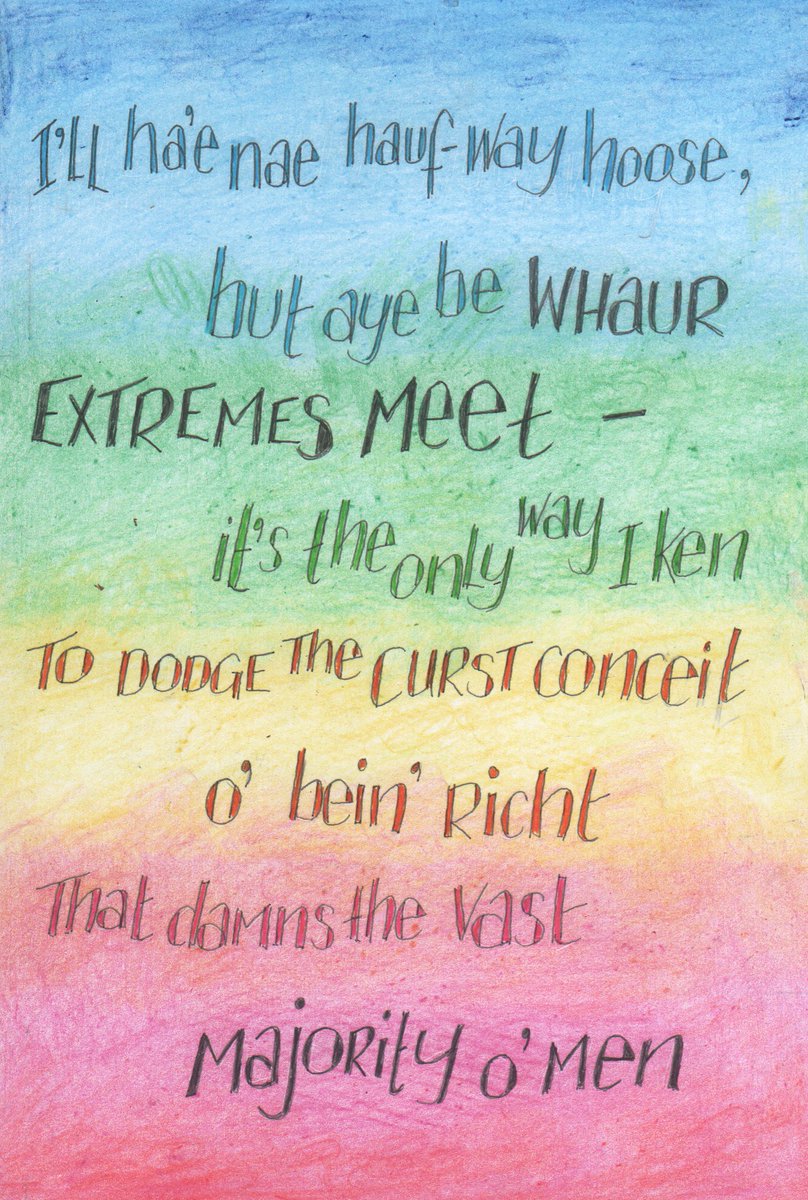 I'll ha'e nae hauf-way hoose,
but aye be WHAUR
EXTREMES Meet –
it's the only way I ken
To DODGE The CURST conceit
o' bein' Richt
That damns the Vast
Majority o' Men